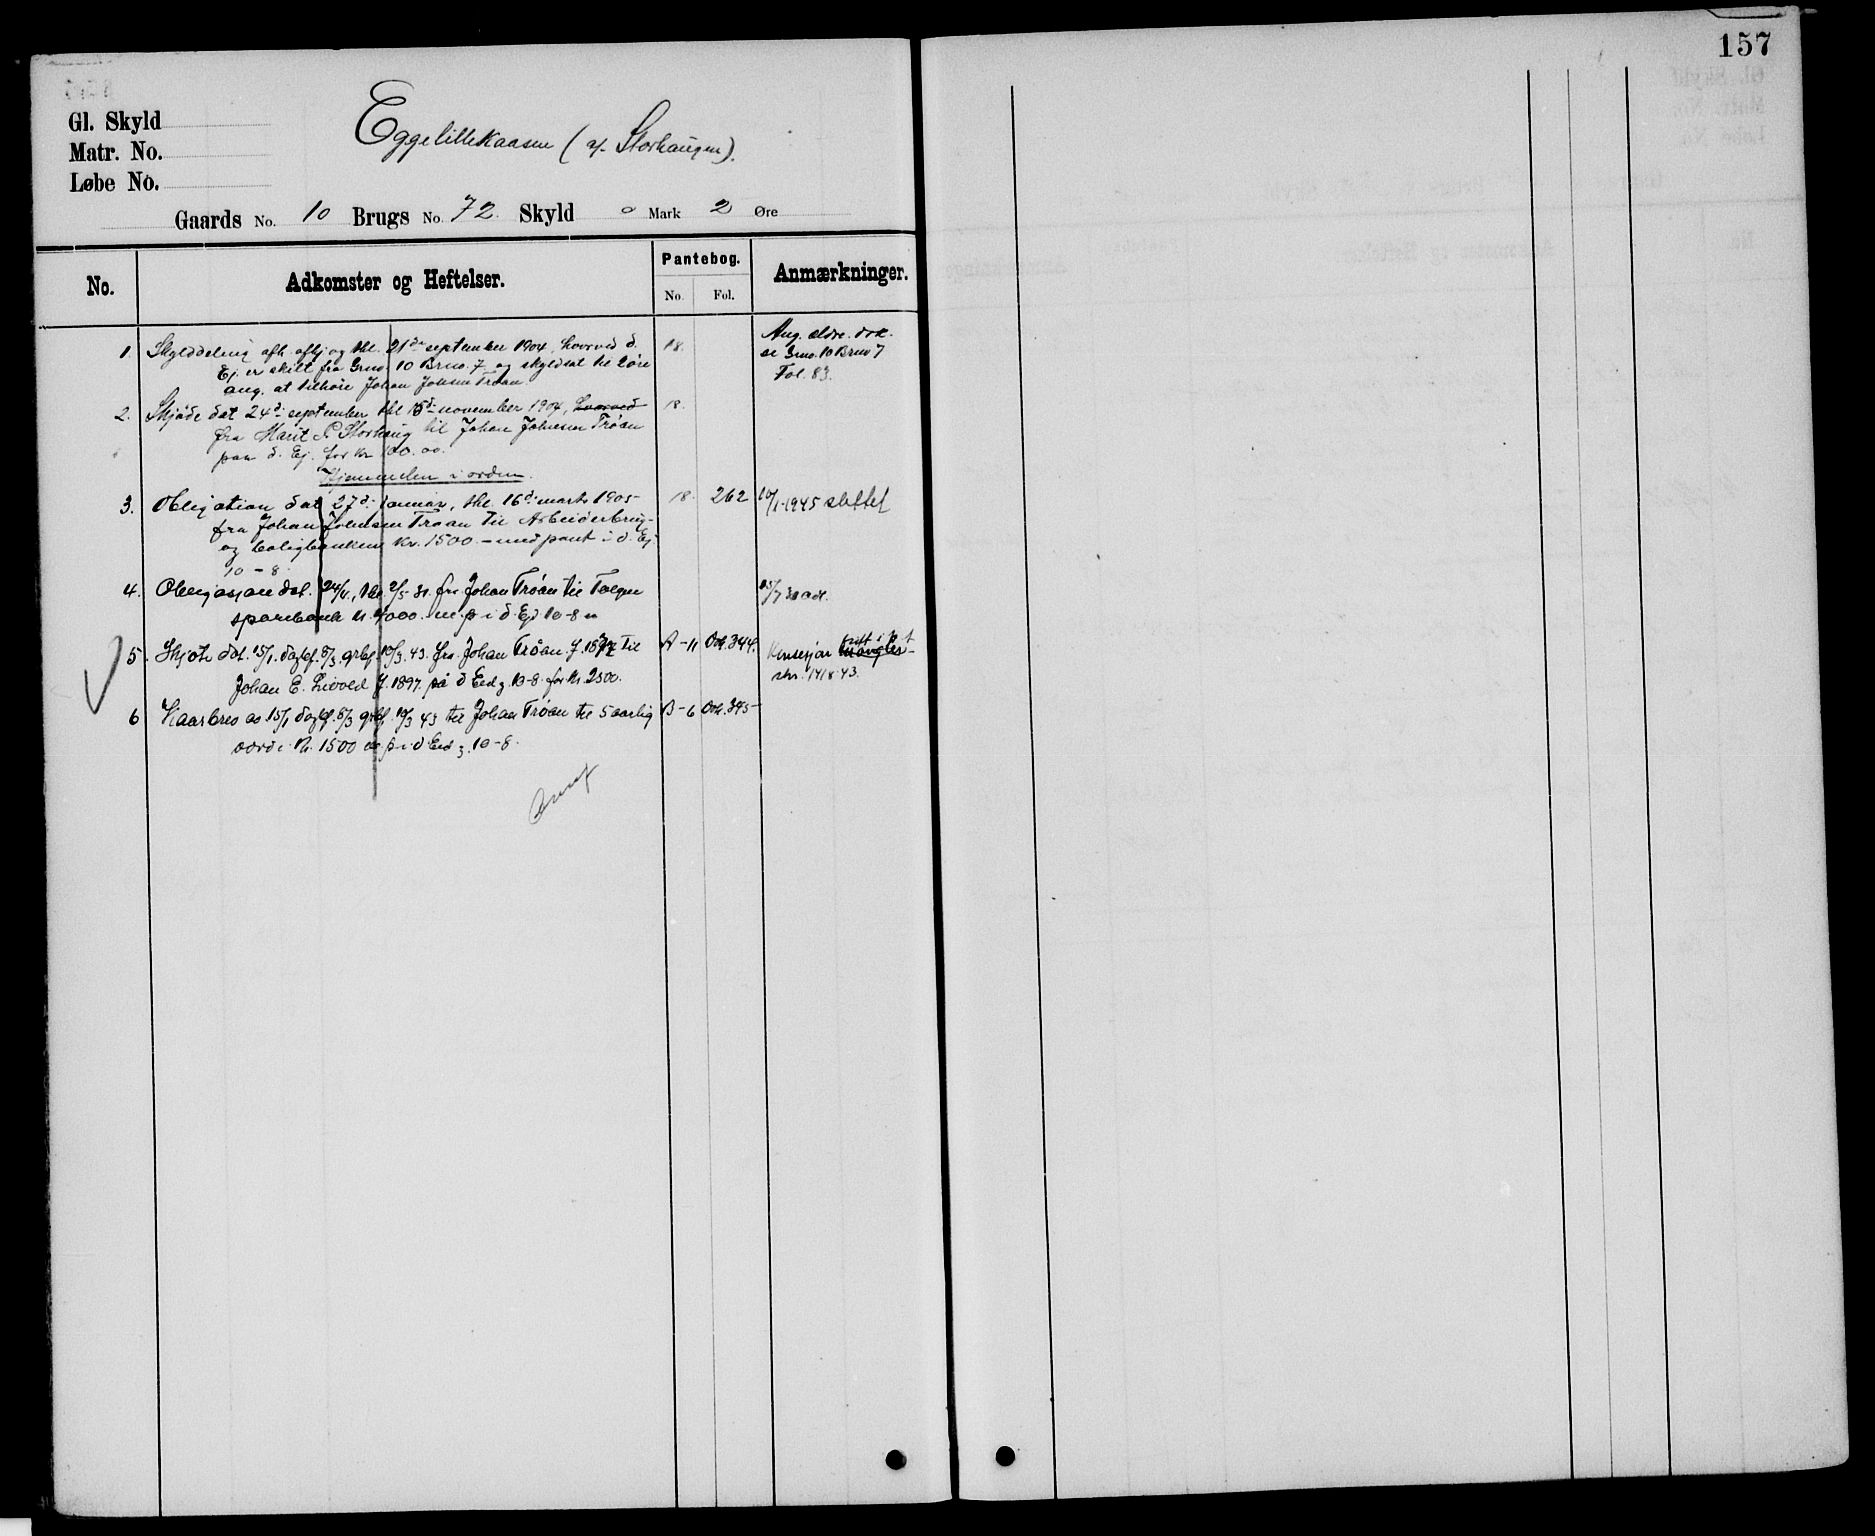 157
Gl. Skyld
Matr. No.
Løbe No.
Eggelillekaasen (af Storhaugen).
Gaards No. 10 Brugs No. 72. Skyld 0 Mark 2 Øre
No. Adkomster og Heftelser. Pantebog. No. Fol. Anmærkninger.
1. Skylddeling afh. afhj og thl. 21de september 1904, hvorved d. 18.
Ej. er skilt fra Gno. 10 Brno. 7 og skyldsat til 2 øre
ang. at tilhøre Johan Johnsen Trøan
Ang. eldre. dok.
se Gno. 10 Brno 7
Fol. 83.
2. Skjøde dat 24d september thl 15d november 1904, hvorved 18.
fra Marit P Storhaug til Johan Johnsen Trøan
paa d. Ej. for kr 100.00.
Hjemmelen i orden
3. Obligation dat 27d. januar, thl. 16d. marts 1905 18. 262 10/1-1945 slettet
fra Johan Johnsen Trøan til Arbeiderbrug-
og boligbanken kr. 1500.- med pant i d. Ej
10-8.
4. Obligasjon dat. 24/4, thl. 2/5-30. fra Johan Trøan til Tolgen
sparebank kr. 4000. m. p. i d. Ejd 10-8
5. Skjøte dat. 15/1. dagbf. 8/3. grbf. 10/3.43. fra Johan Trøan f. 1872 til A-11 Dok. 344.
Johan E. Livold f. 1897. på d Eed g. 10-8. for kr. 2500.
Konsesjon mangler
skr. 14/8.43.
6 Kaarbrev as 15/1 dagbf. 8/3 grbf. 10/3 43 til Johan Trøan til 5 aarlig B-6 Dok. 345
verdi kr. 1500 m p i d Eed g. 10-8.